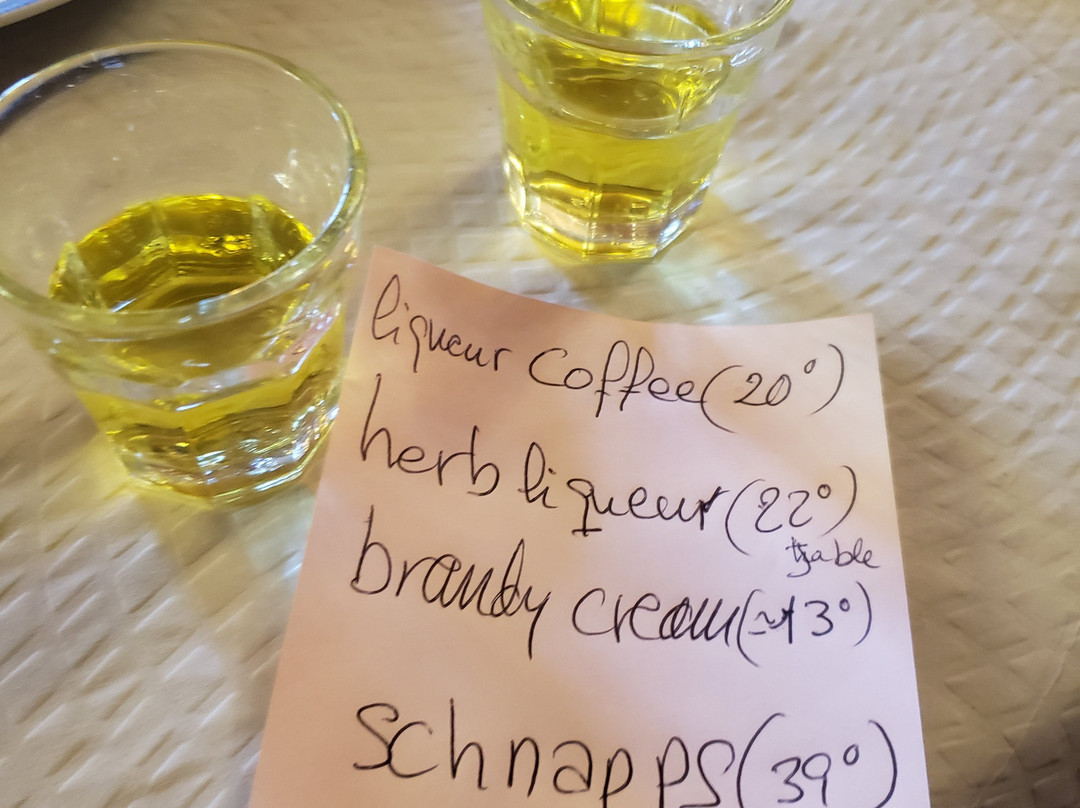 liqueur coffee (20°)
herb liqueur (22°)
brandy cream (≈13°)
schnapps (39°)